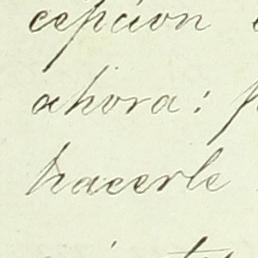 cepcion
ahora:
hacerle